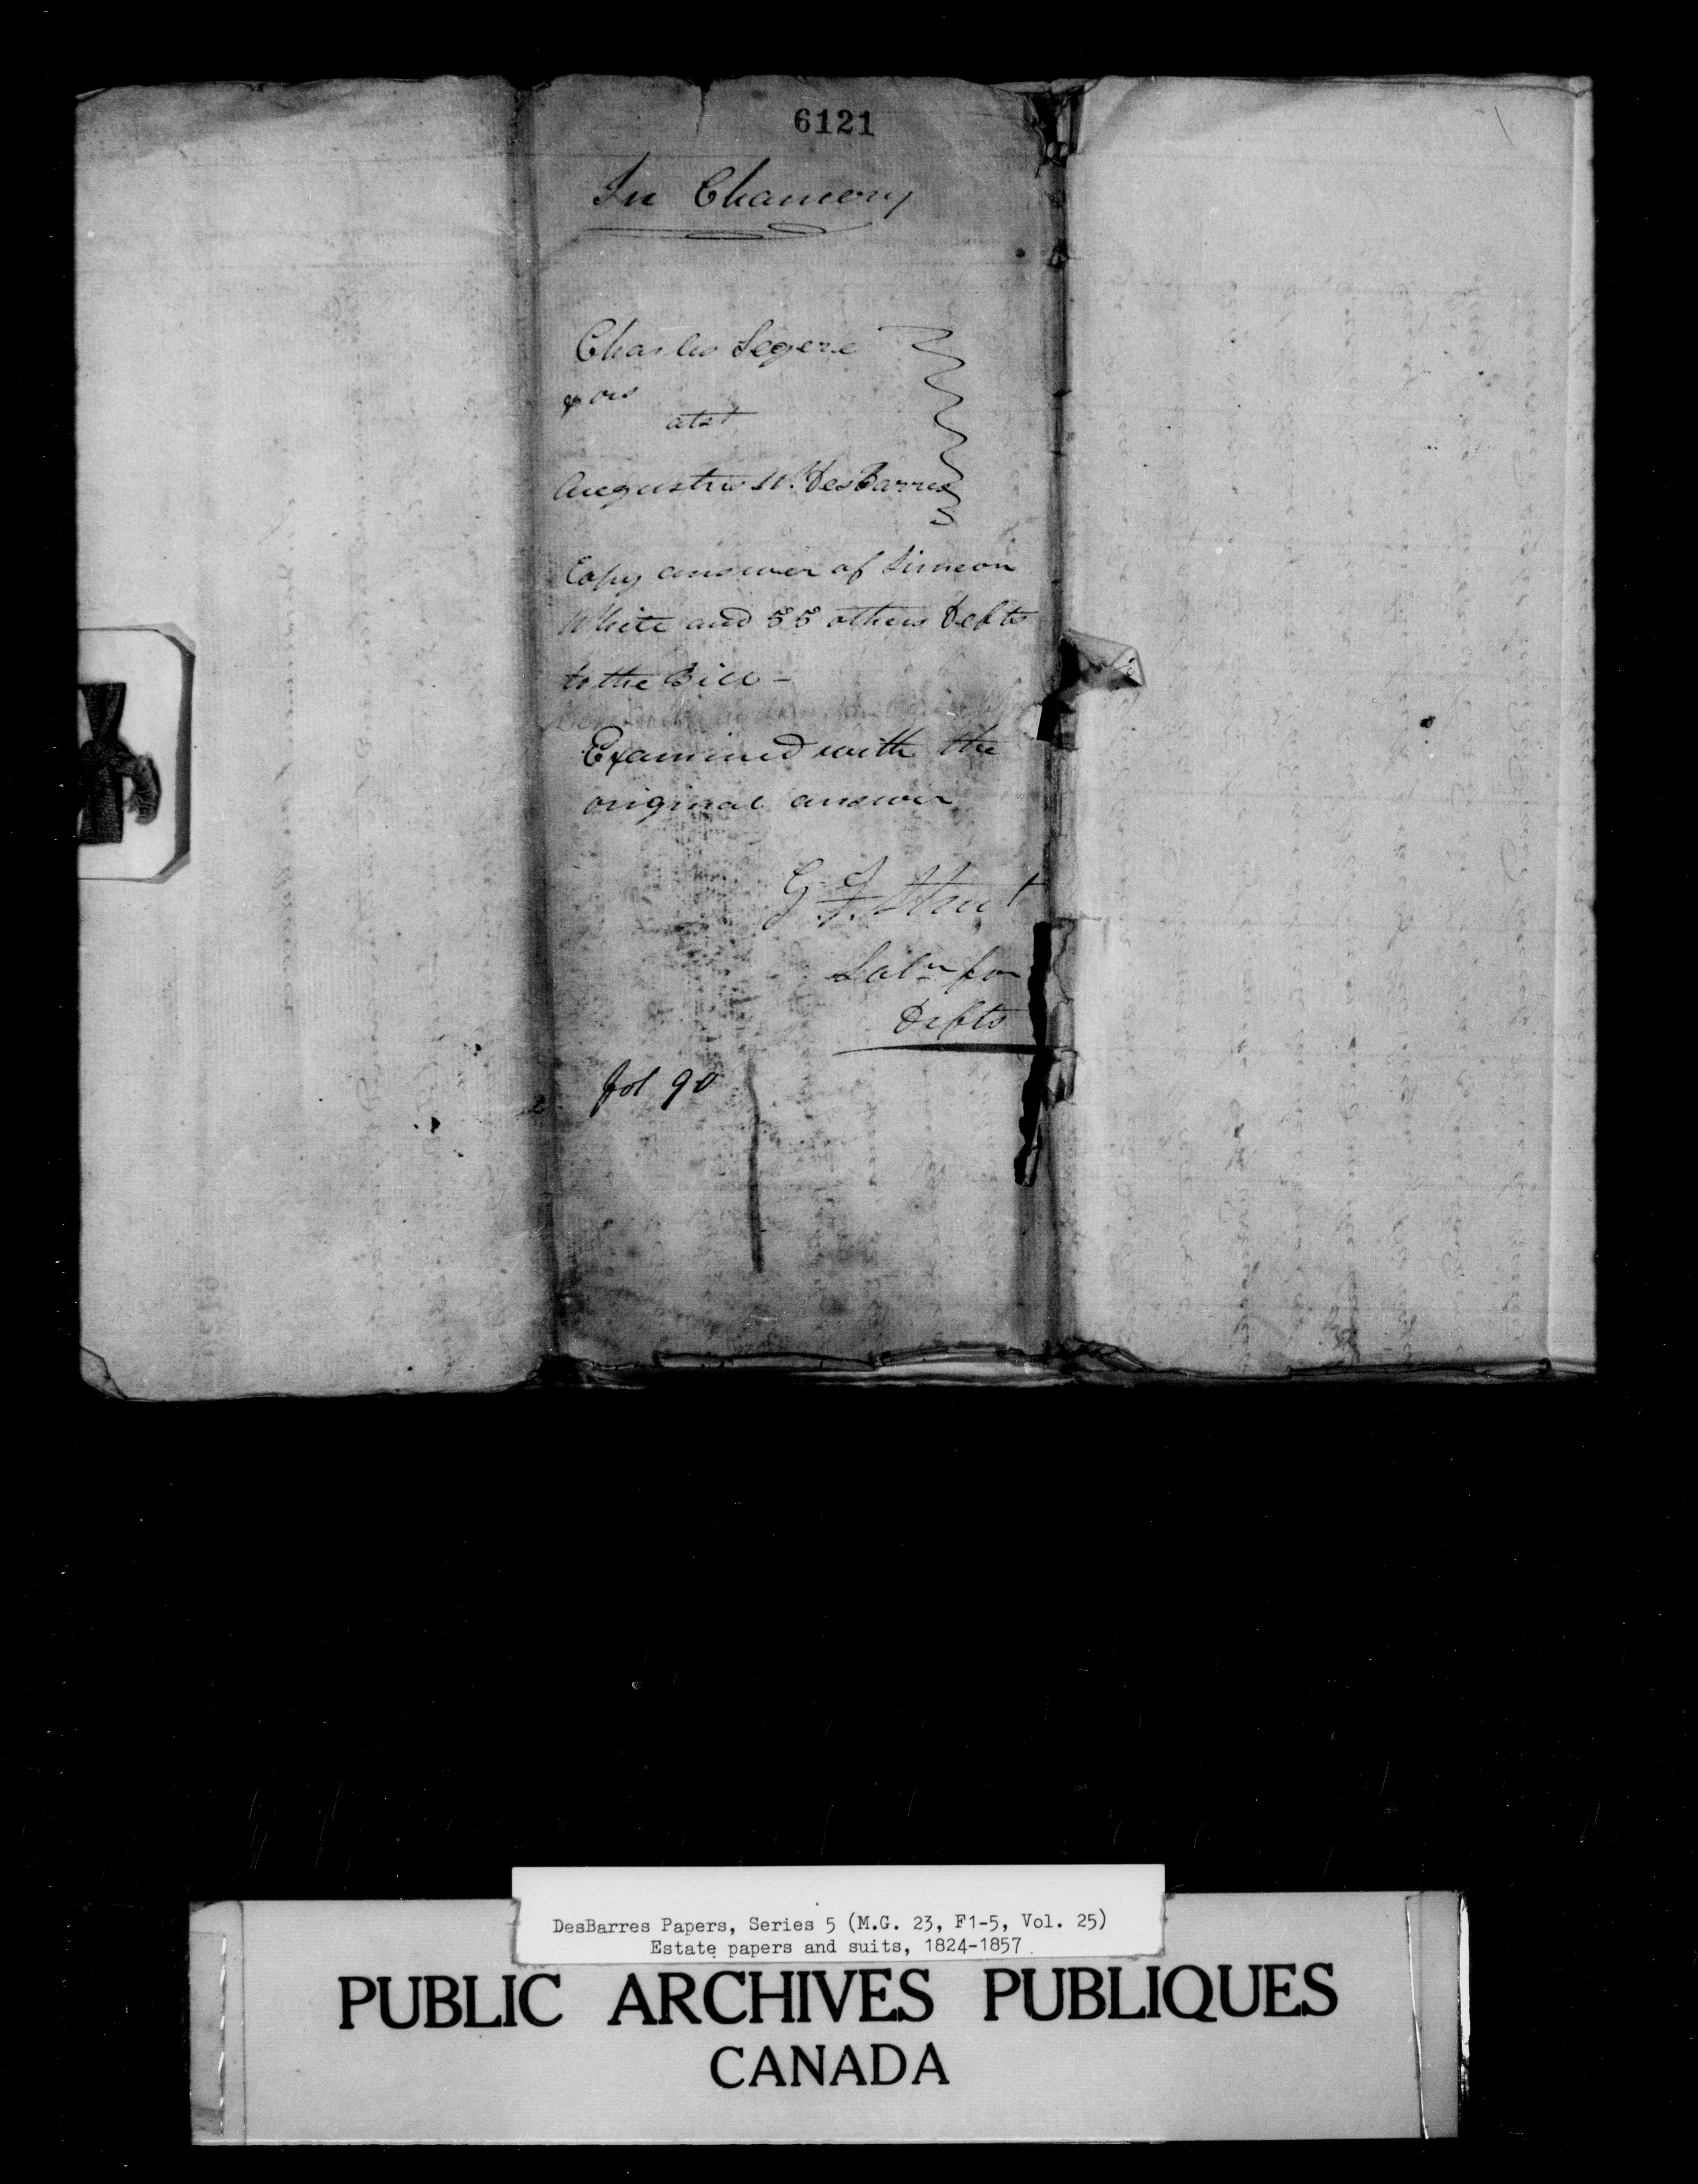 6121
In Chancery
Charles Legere
& ors
ats
Augustus W. DesBarres
Copy answer of Simeon
White and 55 others Defts
to the Bill -
Examined with the
original answer
G. F. Street
Solr for
Defts
fol 90
DesBarres Papers, Series 5 (M.G. 23, F1-5, Vol. 25)
Estate papers and suits, 1824-1857
PUBLIC ARCHIVES PUBLIQUES
CANADA